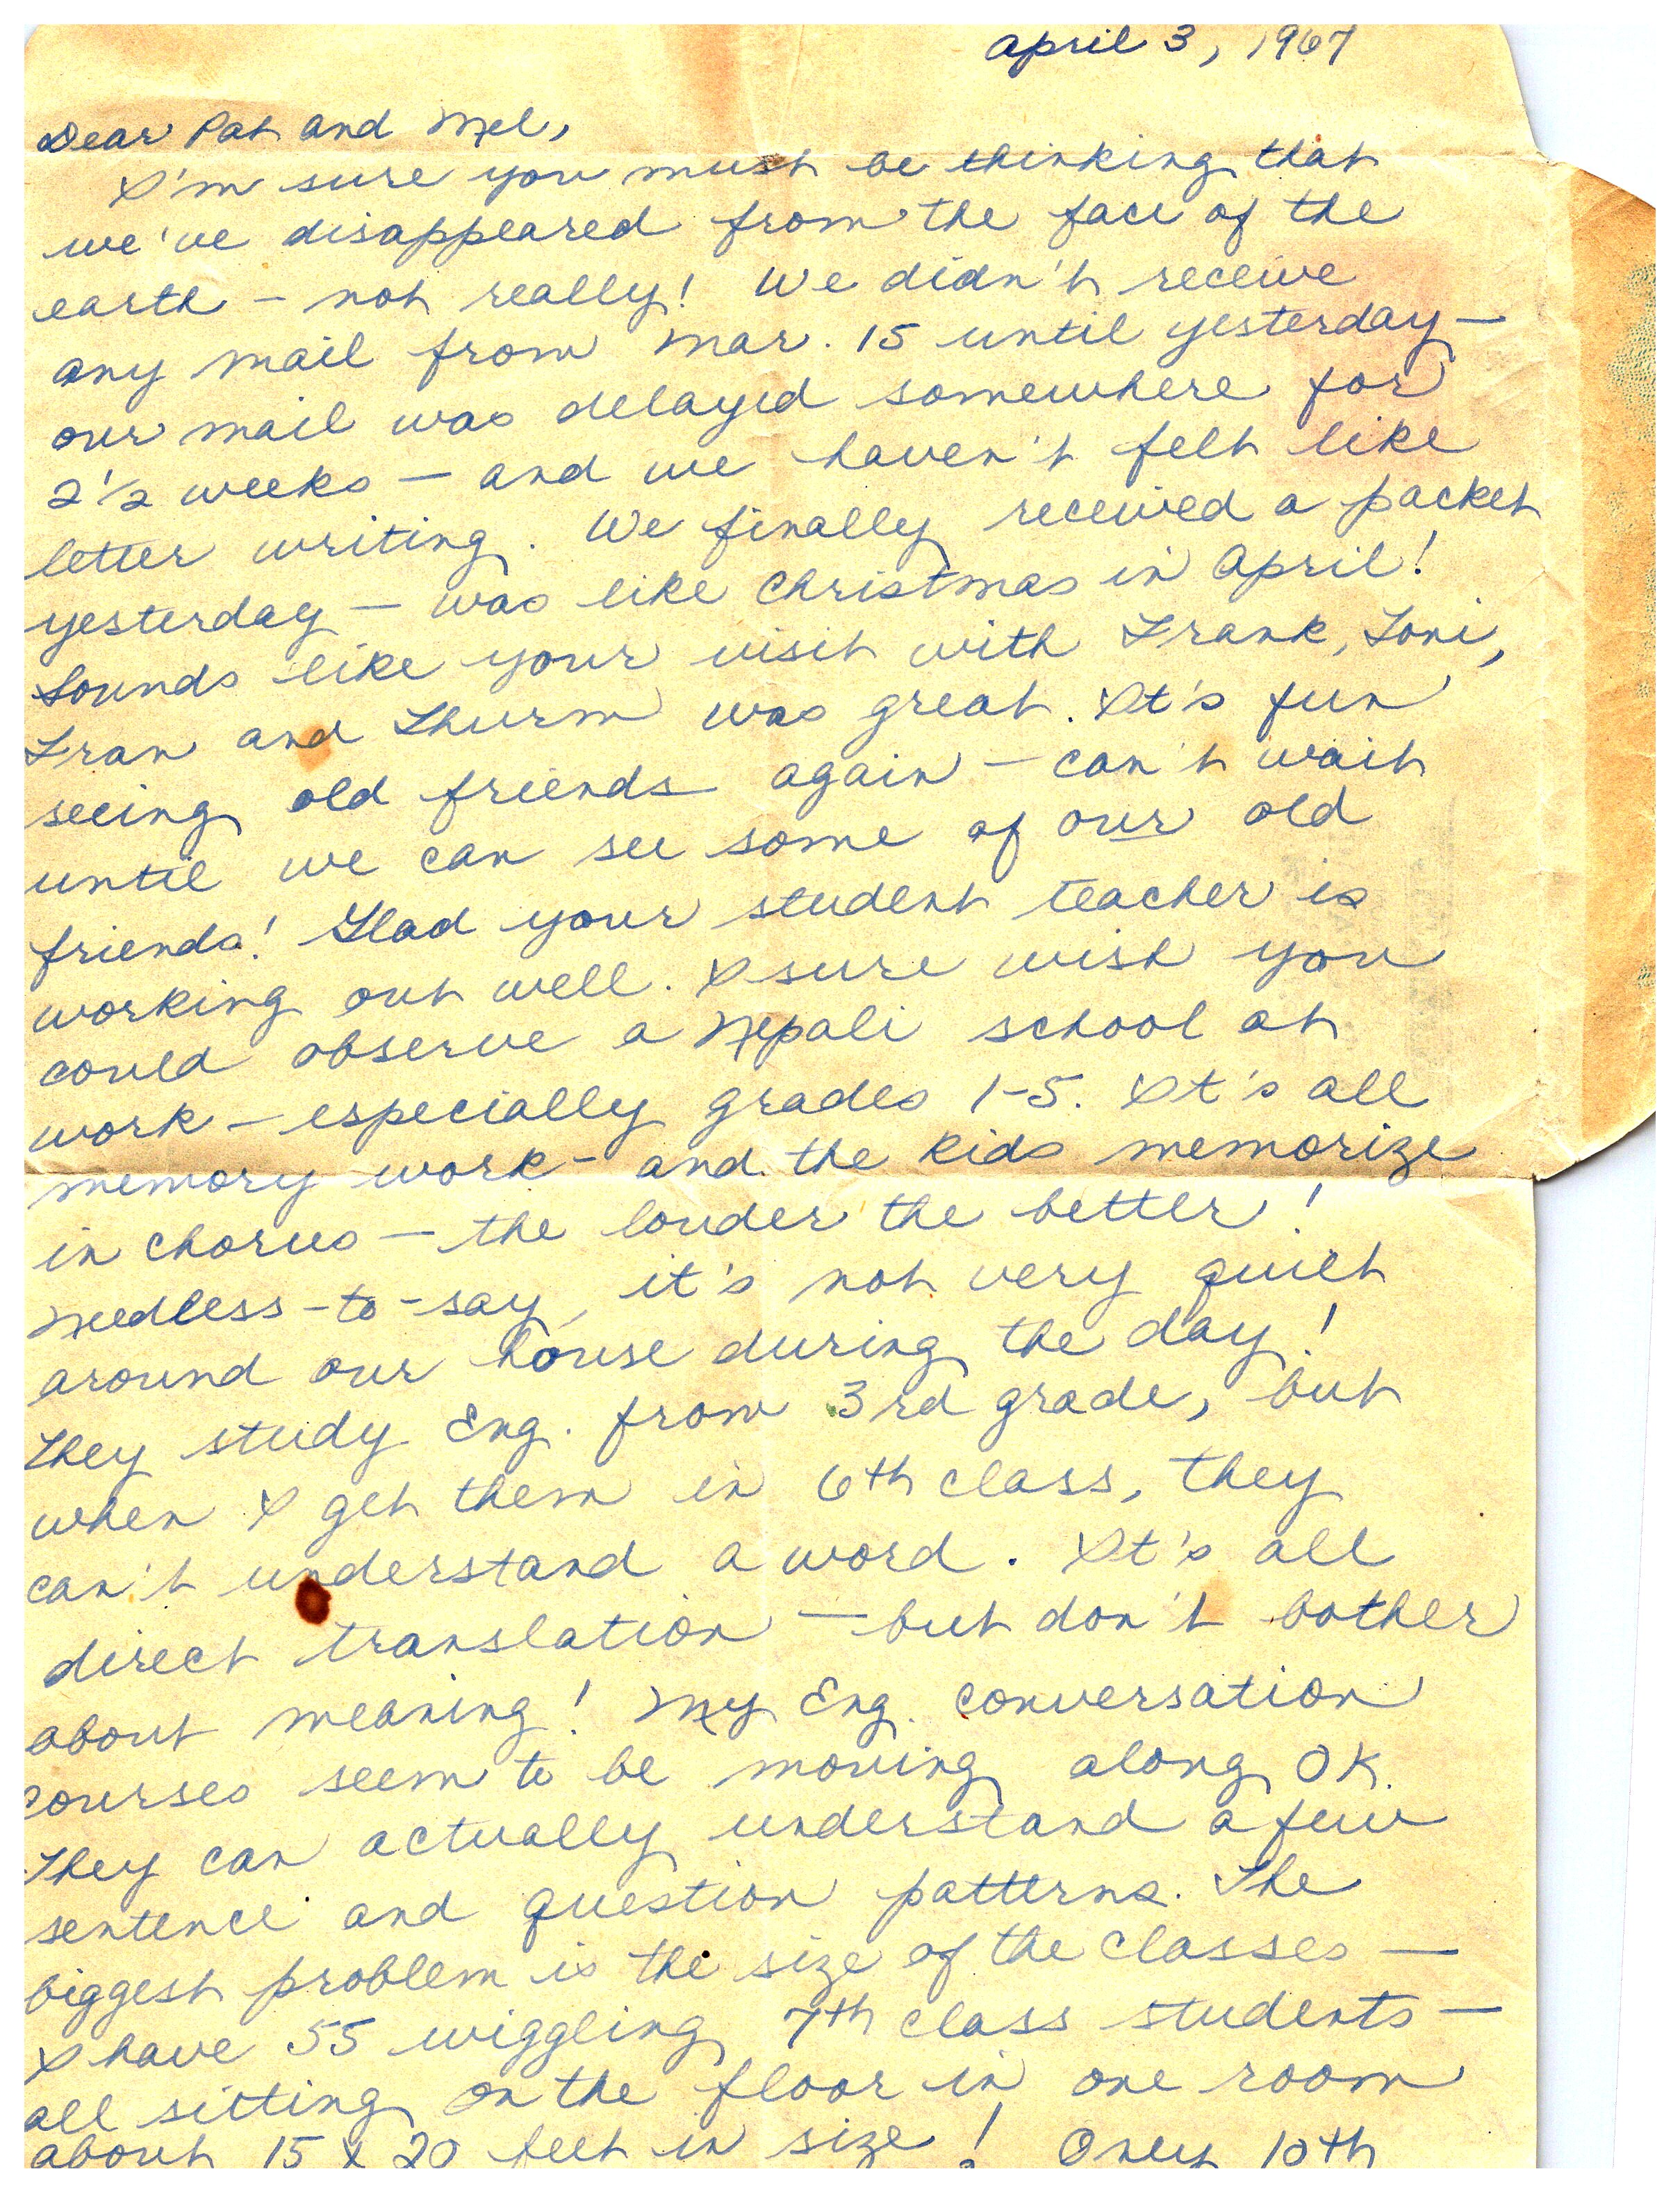 April 3, 1967
Dear Pat and Mel,
I'm sure you must be thinking that
we've disappeared from the face of the
earth – not really! We didn't receive
any mail from Mar. 15 until yesterday –
our mail was delayed somewhere for
2 1/2 weeks – and we haven't felt like
letter writing. We finally received a packet
yesterday – was like Christmas in April!
Sounds like your visit with Frank, Toni,
Fran and Thurm was great. It's fun
seeing old friends again – can't wait
until we can see some of our old
friends! Glad your student teacher is
working out well. I sure wish you
could observe a Nepali school at
work – especially grades 1-5. It's all
memory work – and the kids memorize
in chorus – the louder the better!
Needless-to-say, it's not very quiet
around our house during the day!
They study Eng. from 3rd grade, but
when I get them in 6th class, they
can't understand a word. It's all
direct translation – but don't bother
about meaning! My Eng. conversation
courses seem to be moving along OK.
They can actually understand a few
sentence and question patterns. The
biggest problem is the size of the classes –
I have 55 wiggling 7th class students –
all sitting on the floor in one room
about 15 x 20 feet in size! Only 10th